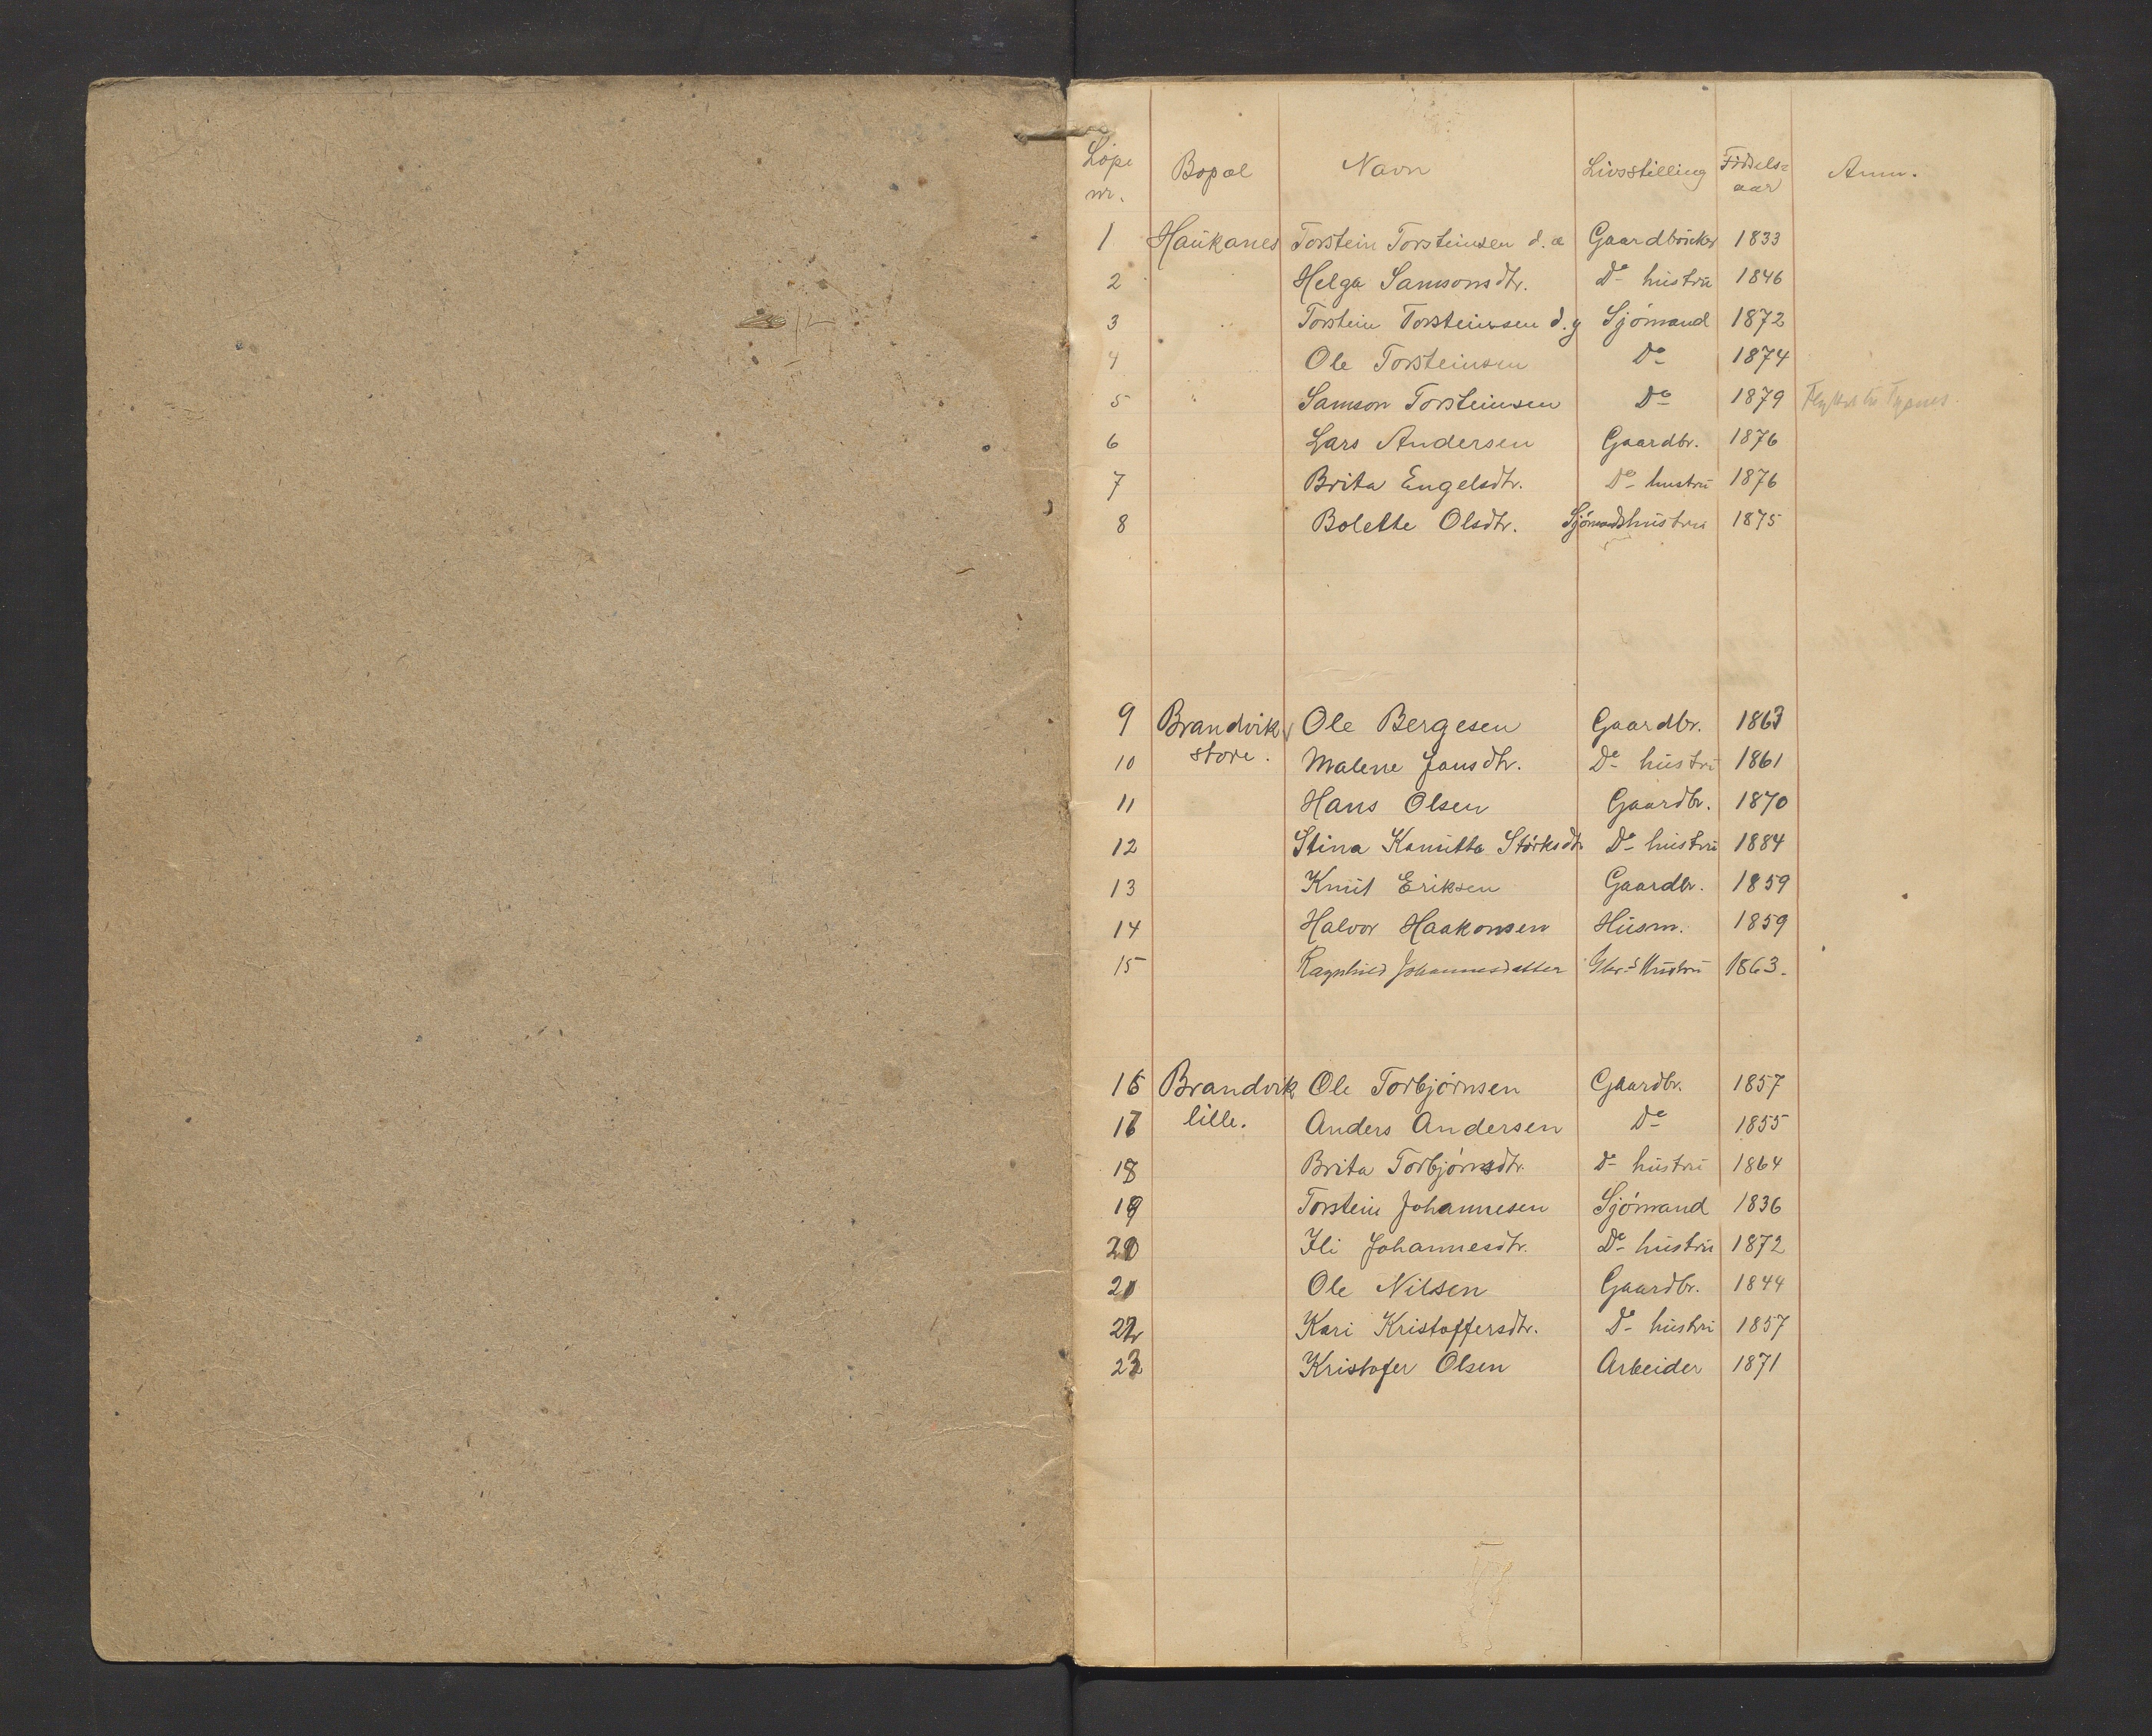 Løpe nr. Bopæl Navn Livsstilling Fødsels= aar Anm.
1 Haukanes Torstein Torsteinsen d.æ Gaardbruker 1833
2 Helga Samsonsdtr. Do hustru 1846
3 Torstein Torsteinsen d.y Sjömand 1872
4 Ole Torsteinsen Do 1874
5 Samson Torsteinsen Do 1879 Flyttet til
6 Lars Andersen Gaardbr. 1876
7 Brita Engelsdtr. Do hustru 1876
8 Bolette Olsdtr. Sjömandshustru 1875
9 Brandvik Ole Bergesen Gaardbr. 1863
10 store. Malene Jansdtr. Do hustru 1861
11 Hans Olsen Gaardbr. 1870
12 Stina Kamitta Störksdtr Do hustru 1884
13 Knut Eriksen Gaardbr. 1859
14 Halvor Haakonsen Husm. 1859
15 Ragnhild Johannesdatter Gbr.s Hustru 1863.
16 Brandvik Ole Torbjørnsen Gaardbr. 1857
17 lille. Anders Andersen Do 1855
18 Brita Torbjörnsdtr. Do hustru 1864
19 Torstein Johannesen Sjömand 1836
20 Ili Johannesdtr. Do hustru 1872
21 Ole Nilsen Gaardbr. 1844
22 Kari Kristoffersdtr. Do hustru 1857
23 Kristofer Olsen Arbeider 1871